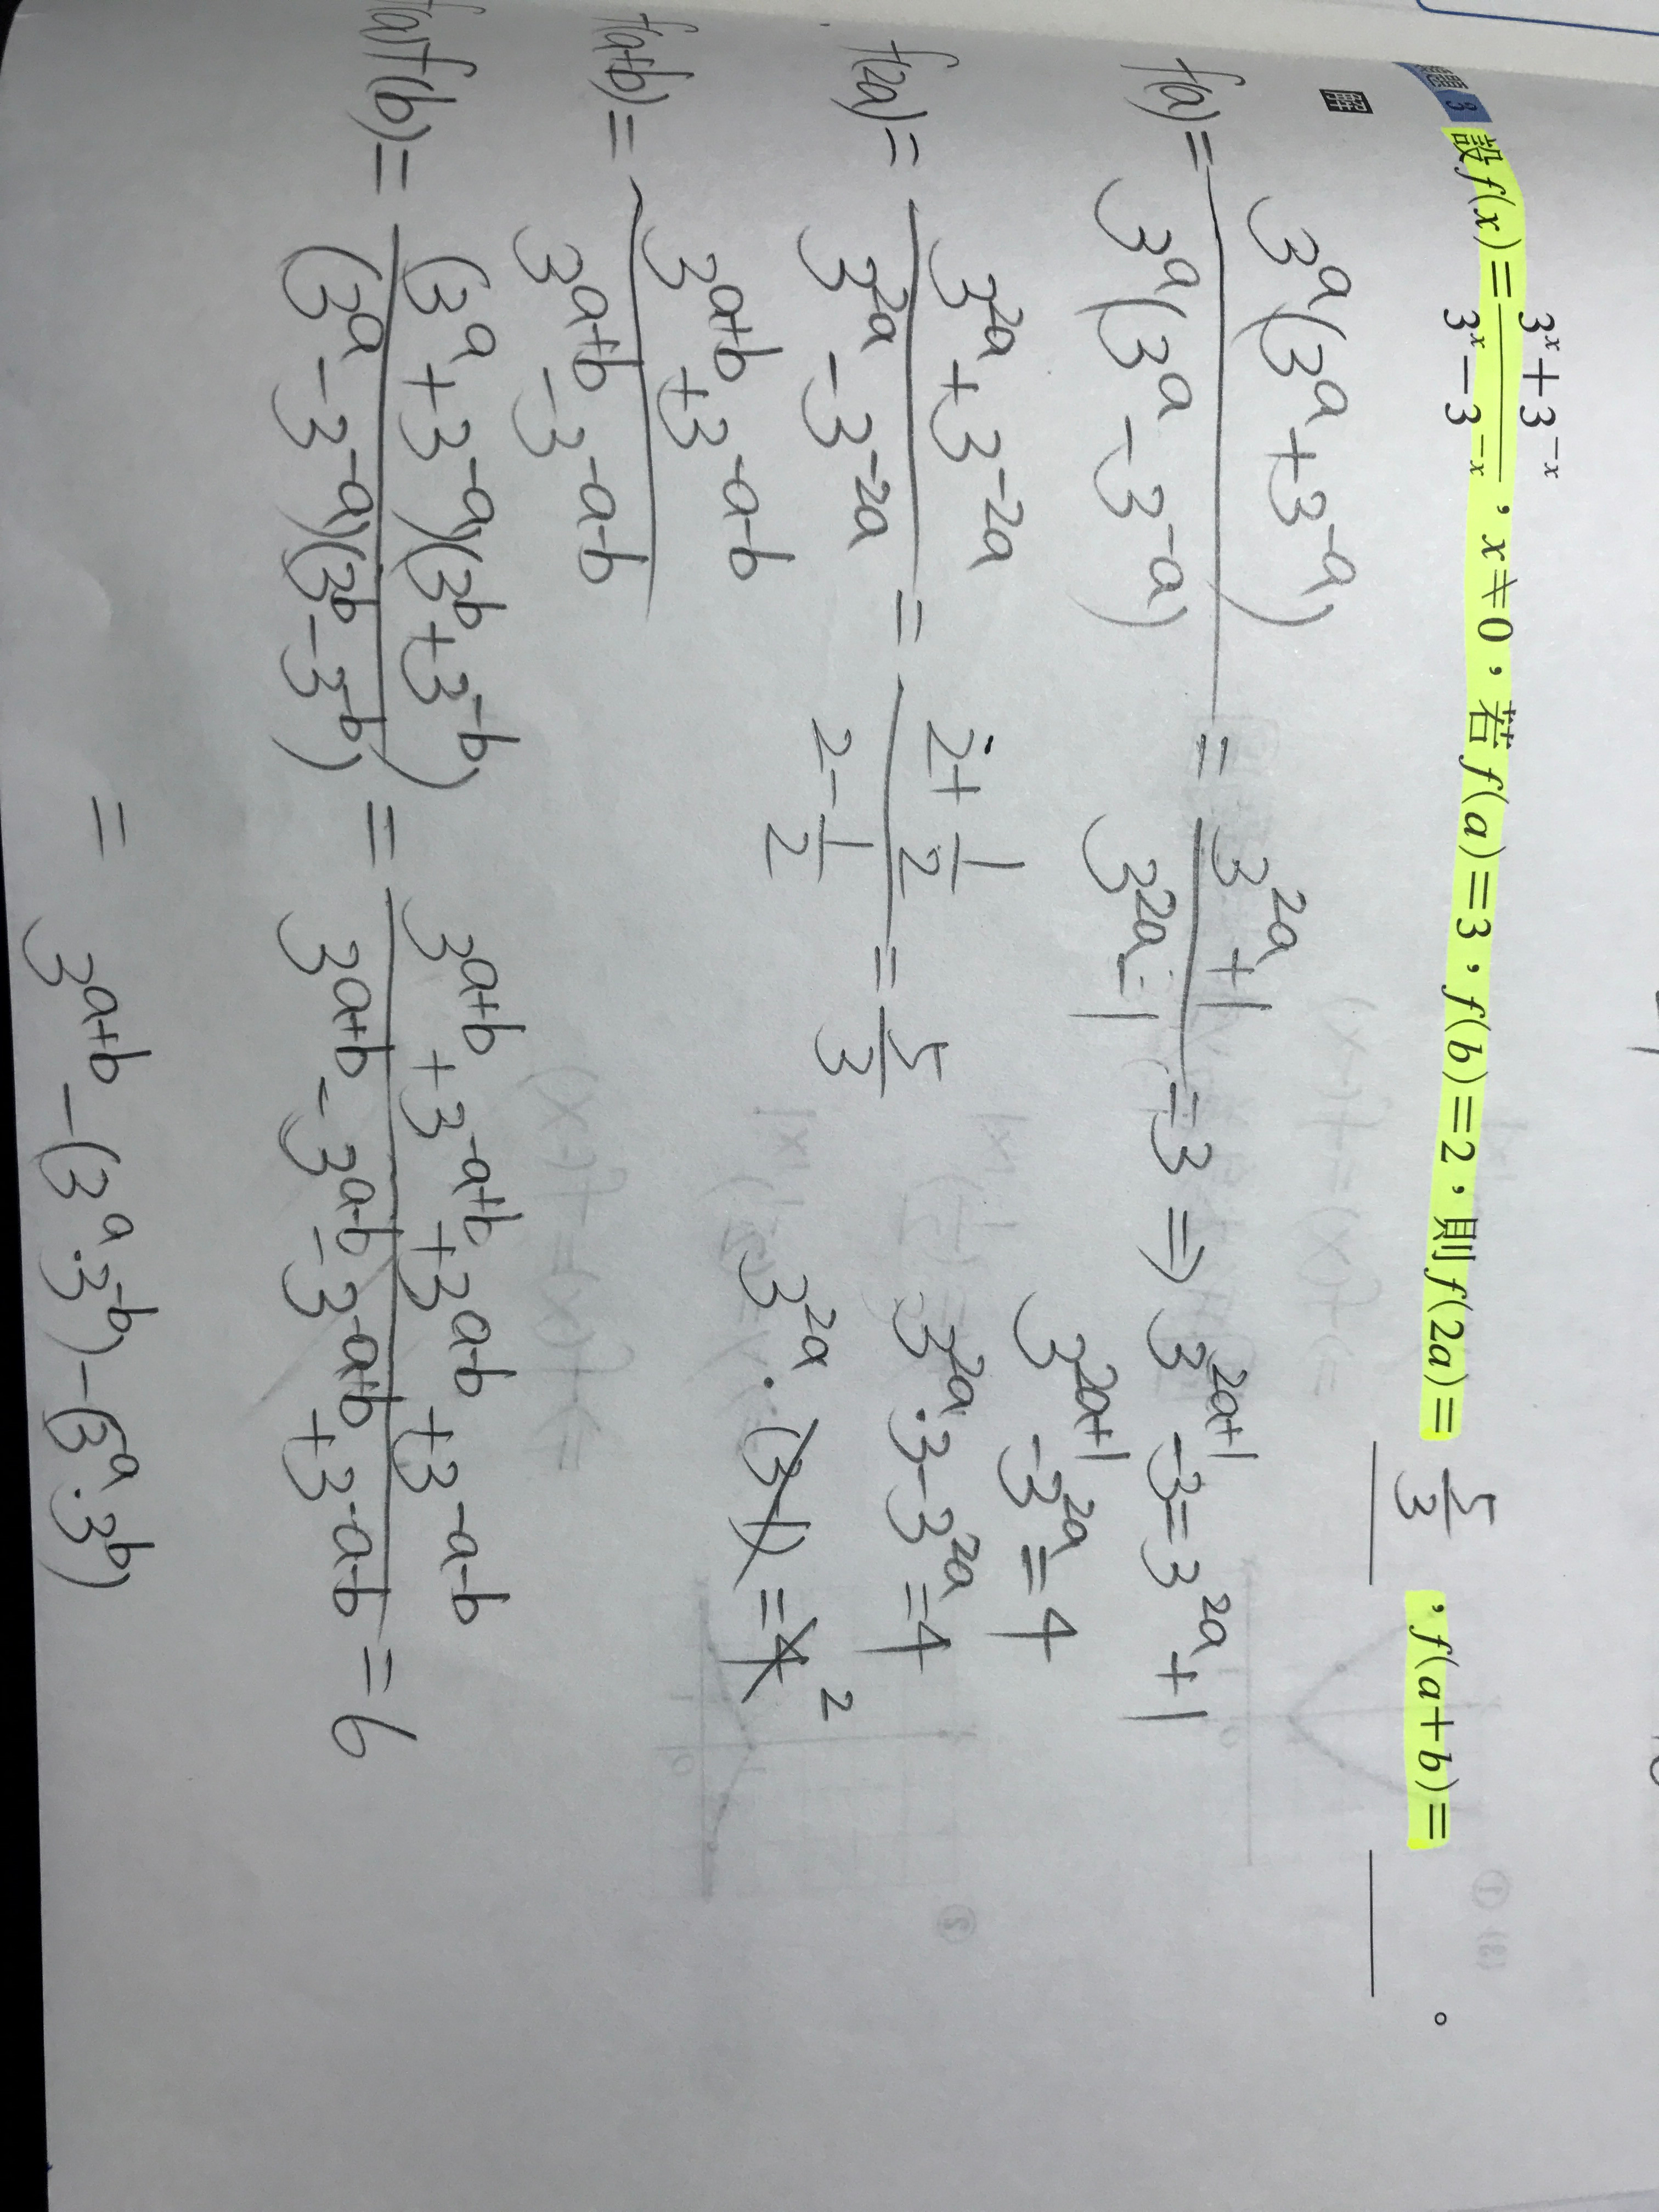 範例 3 設 f(x)=(3^x+3^-x)/(3^x-3^-x),x≠0,若 f(a)=3,f(b)=2,則 f(2a)= 5/3 ,f(a+b)= 。
解
f(a)= 3^a(3^a+3^-a)/3^a(3^a-3^-a) = (3^2a+1)/(3^2a-1) =3 ⇒ 3^2a+1 -3=3^2a +1
3^2a+1 -3^2a =4
f(2a)= (3^2a+3^-2a)/(3^2a-3^-2a) = (2+1/2)/(2-1/2) = 5/3
3^2a·3-3^2a =4
3^2a · = 2
f(a+b)= (3^a+b +3^-a-b)/(3^a+b -3^-a-b)
f(a)f(b)= (3^a+3^-a)(3^b+3^-b)/(3^a-3^-a)(3^b-3^-b) = (3^a+b +3^-a+b +3^a-b +3^-a-b)/(3^a+b -3^a-b -3^-a+b +3^-a-b) = 6
= 3^a+b -(3^a·3^-b)-(3^a·3^b)